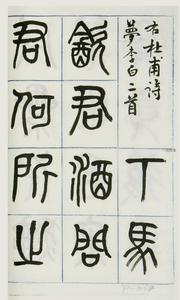 右杜甫詩
夢李白二首
下馬
飲君酒問
君何所之